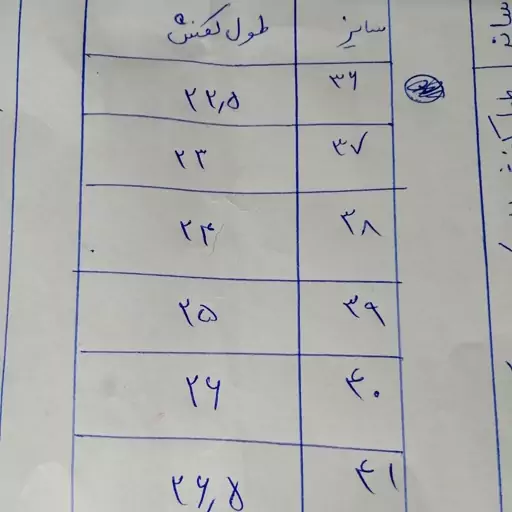 سایز طول کفش
۳۶ ۲۲,۵
۳۷ ۲۳
۳۸ ۲۴
۳۹ ۲۵
۴۰ ۲۶
۴۱ ۲۶,۵